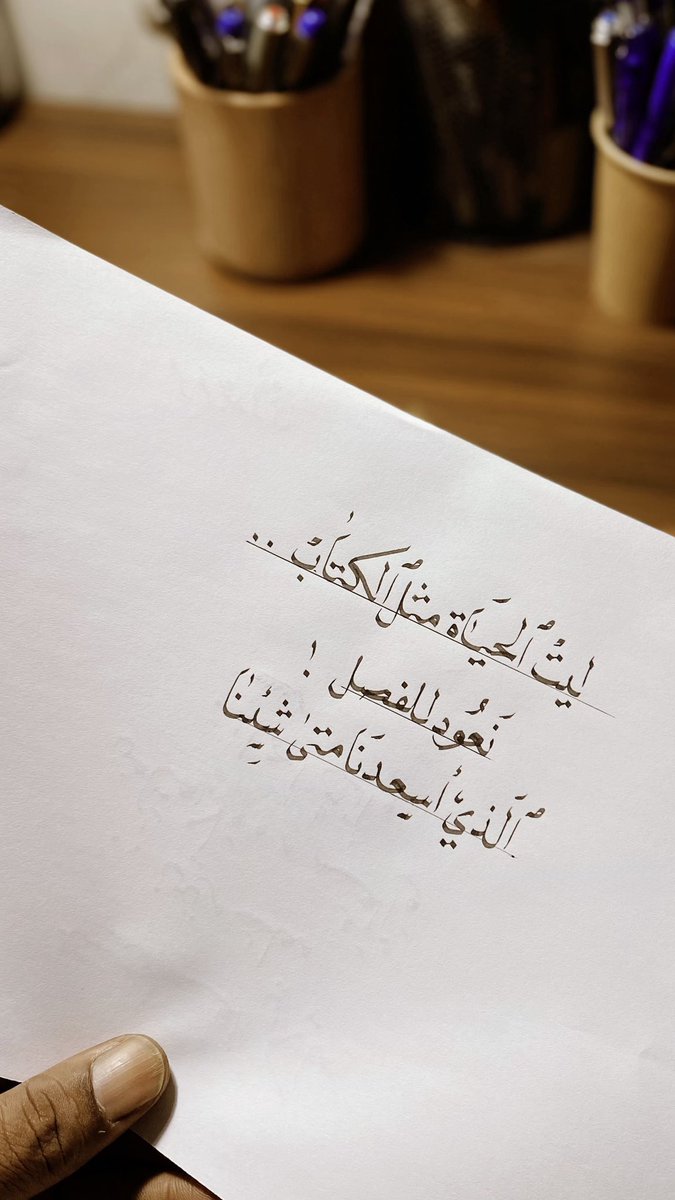 ليتْ ٱلحَيَاة مثل ٱلكتَابْ ..
نَعُود للفصل !
ٱلَّذيْ أسعدنَا متىٰ شئِنَا